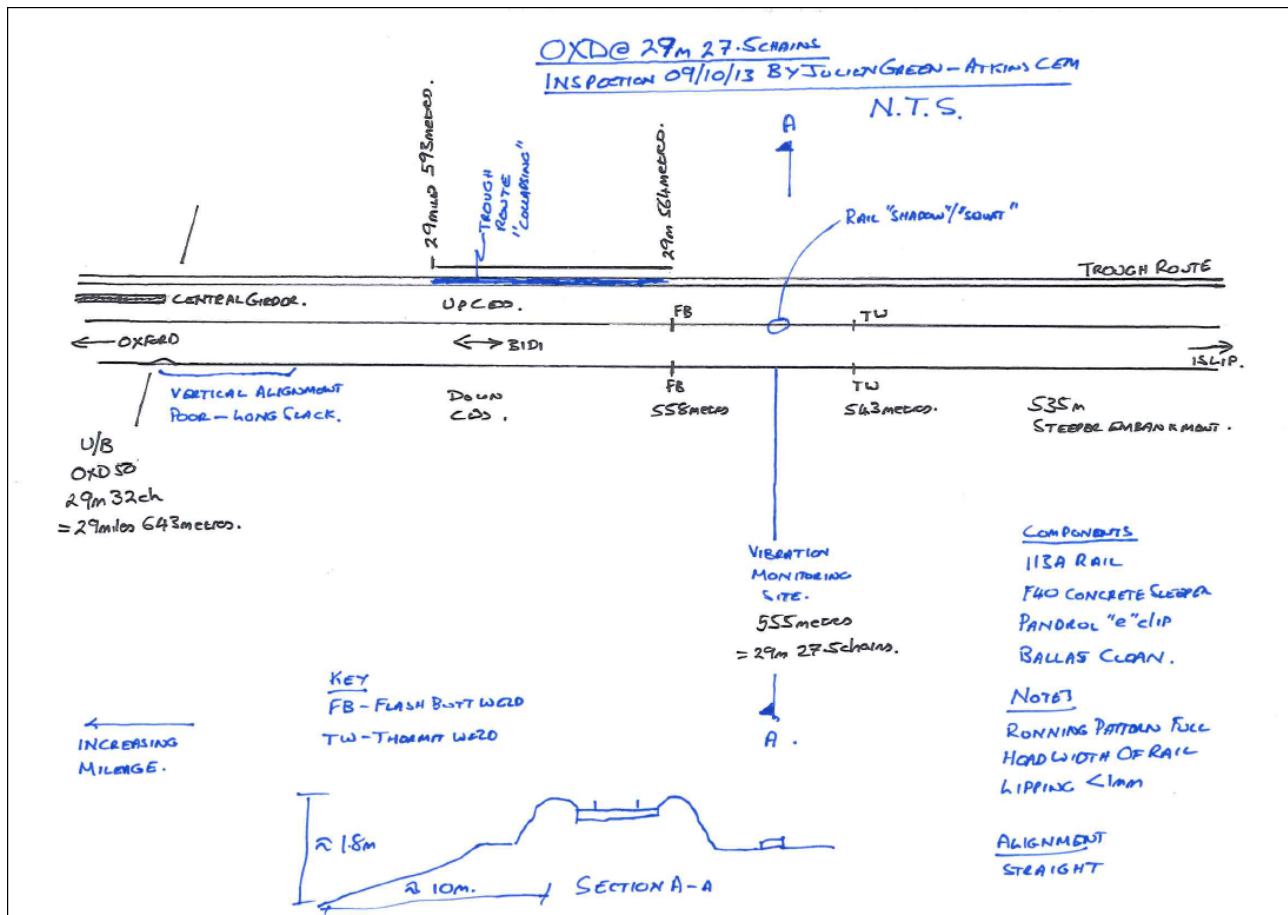 OXD@ 29m 27.5CHAINS
INSPECTION 09/10/13 BY JULIEN GREEN - ATKINS CEM
N.T.S.
A
29MILES 593METRES.
TROUGH
ROUTE
"COLLAPSING"
29m 564METRES.
RAIL "SHADOW"/"SQUAT"
TROUGH ROUTE
CENTRAL GIRDER.
UP CESS.
FB
TW
OXFORD
BIDI
ISLIP.
VERTICAL ALIGNMENT
POOR - LONG SLACK.
DOWN
CESS.
FB
558METRES
TW
543METRES.
535m
STEEPER EMBANKMENT.
U/B
OXD50
29m 32ch
= 29miles 643metres.
VIBRATION
MONITORING
SITE.
555metres
= 29m 27.5chains.
A.
COMPONENTS
113A RAIL
F40 CONCRETE SLEEPER
PANDROL "e" CLIP
BALLAS CLEAN.
NOTES
RUNNING PATTERN FULL
HEAD WIDTH OF RAIL
LIPPING <1mm
ALIGNMENT
STRAIGHT
KEY
FB - FLASH BUTT WELD
TW - THERMIT WELD
INCREASING
MILEAGE.
≈ 1.8m
≈ 10m.
SECTION A-A